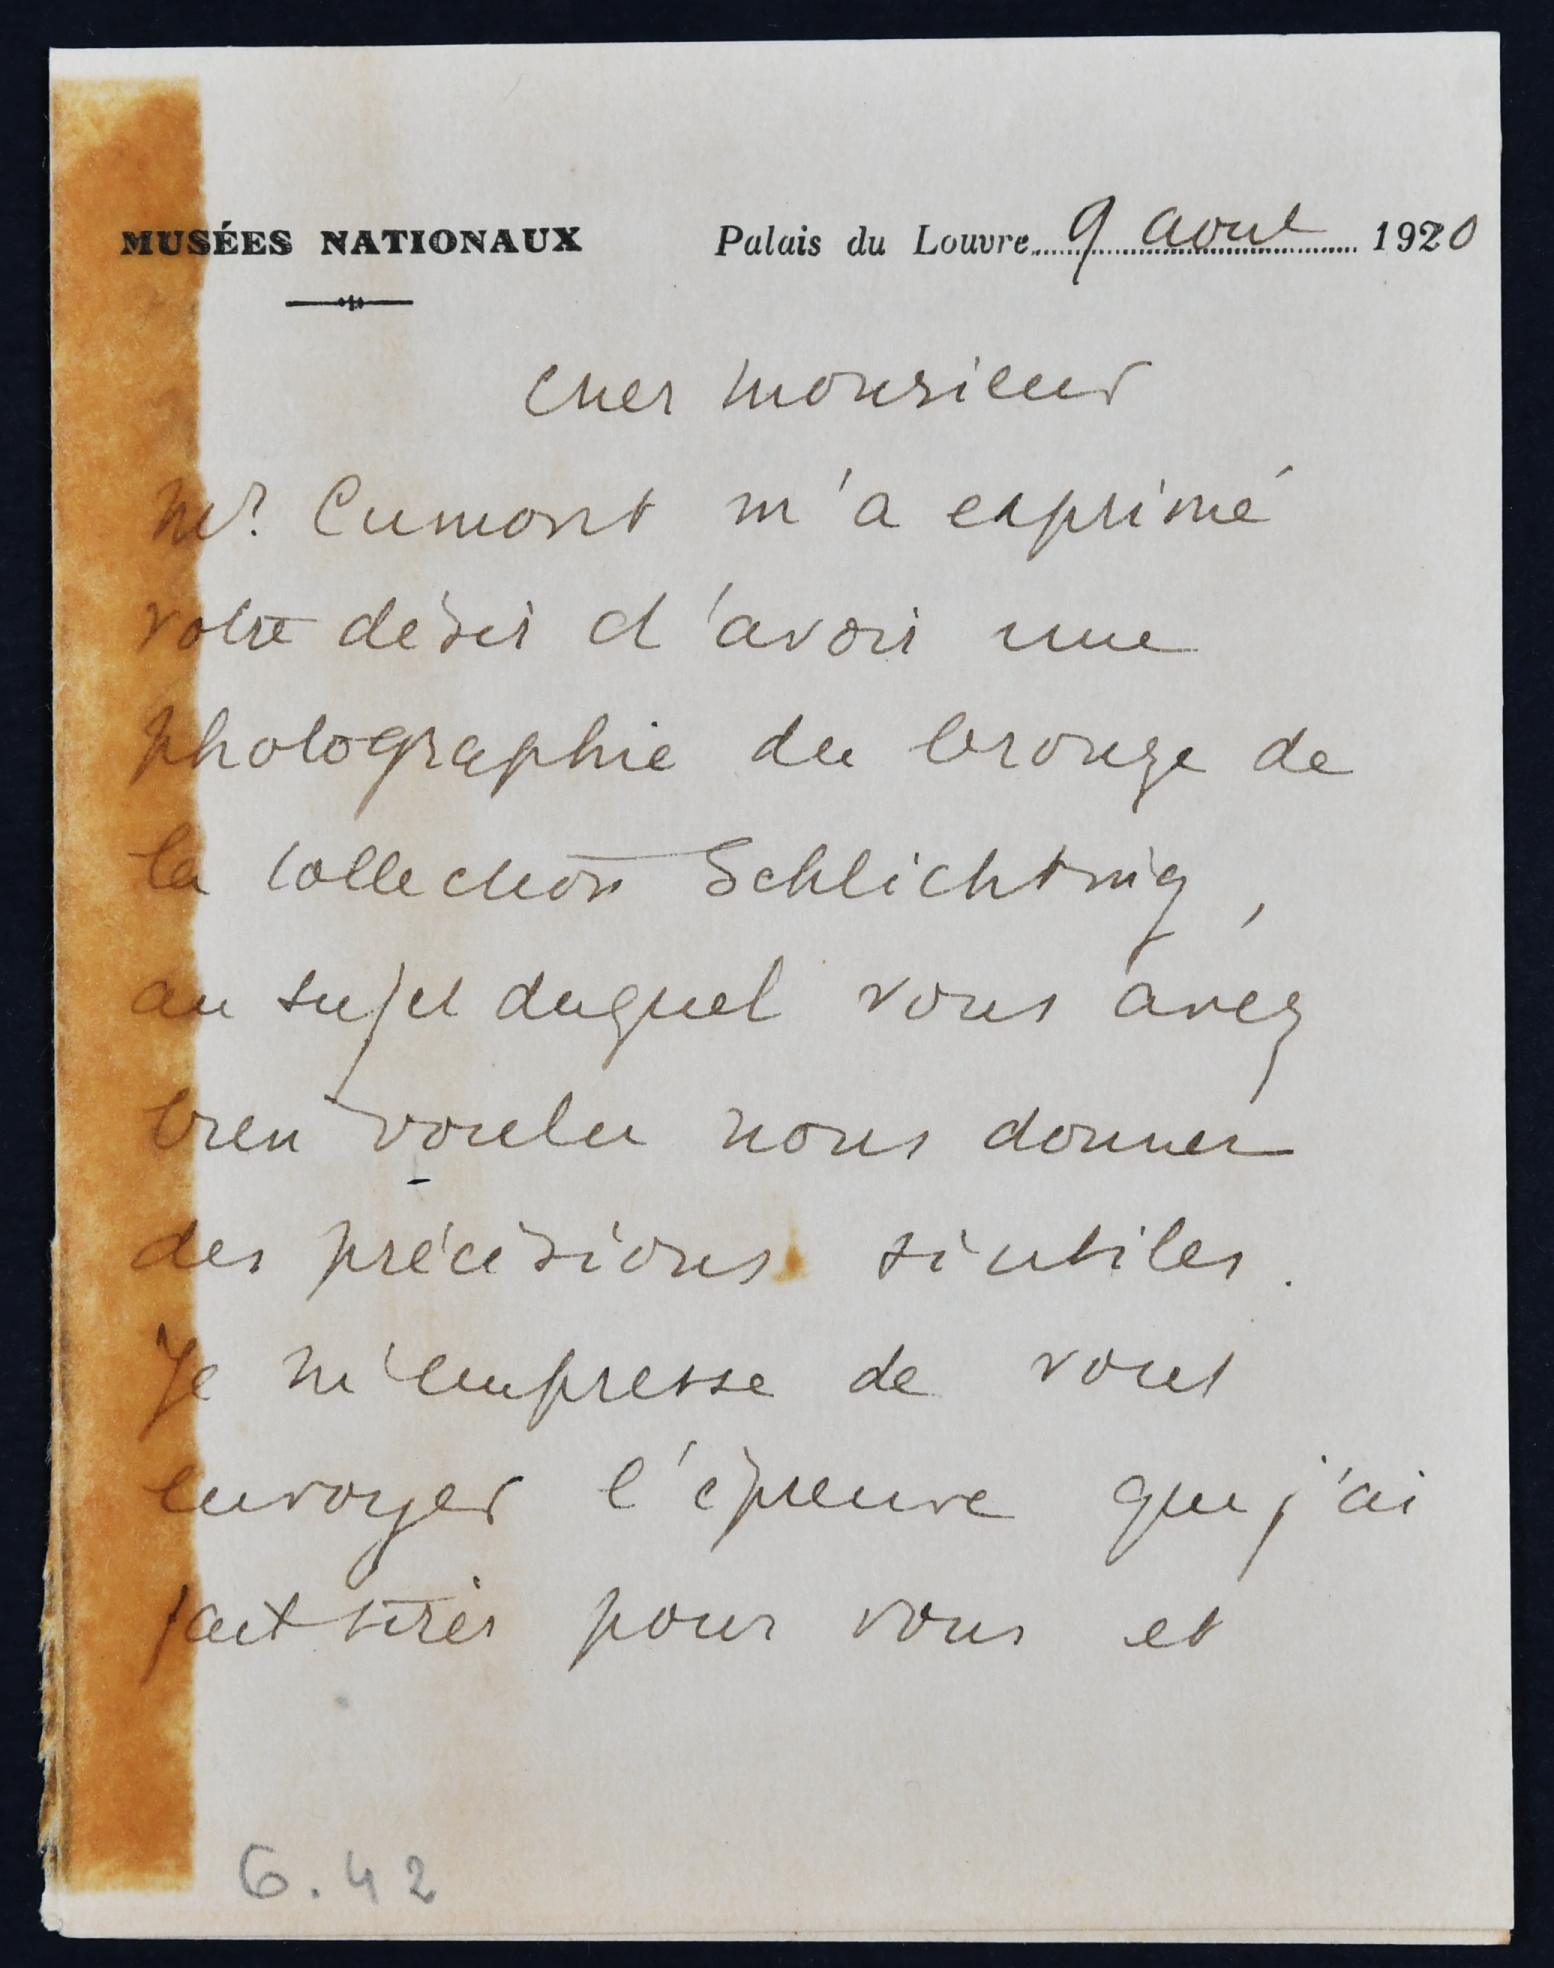 MUSÉES NATIONAUX Palais du Louvre 9 aout 1920
Cher Monsieur
Mr. Cumont m'a exprimé
votre désir d'avoir une
photographie du bronze de
la collection Schlichting,
au sujet duquel vous avez
bien voulu nous donner
des précisions si utiles.
Je m'empresse de vous
envoyer l'épreuve que j'ai
fait tirer pour vous et
G. 42